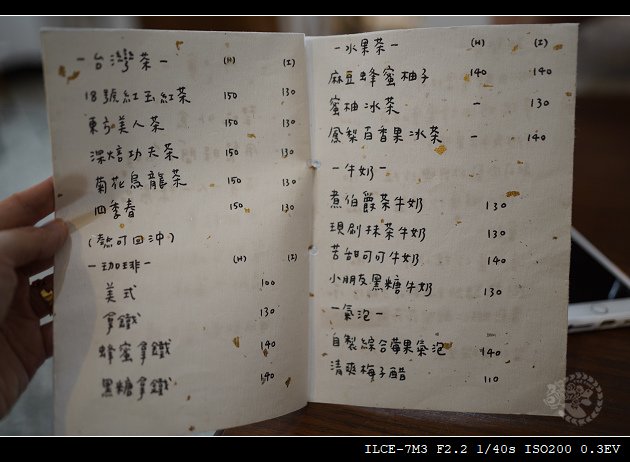 -台灣茶- (H) (I)
18號紅玉紅茶 150 130
東方美人茶 150 130
深焙功夫茶 150 130
菊花烏龍茶 150 130
四季春 150 130
(熱可回沖)
-珈琲- (H) (I)
美式 100
拿鐵 130
蜂蜜拿鐵 140
黑糖拿鐵 140
-水果茶- (H) (I)
麻豆蜂蜜柚子 140 140
蜜柚冰茶 - 130
鳳梨百香果冰茶 - 140
-牛奶-
煮伯爵茶牛奶 130
現刷抹茶牛奶 130
苦甜可可牛奶 140
小朋友黑糖牛奶 130
-氣泡-
自製綜合莓果氣泡 140
清爽梅子醋 110
ILCE-7M3 F2.2 1/40s ISO200 0.3EV